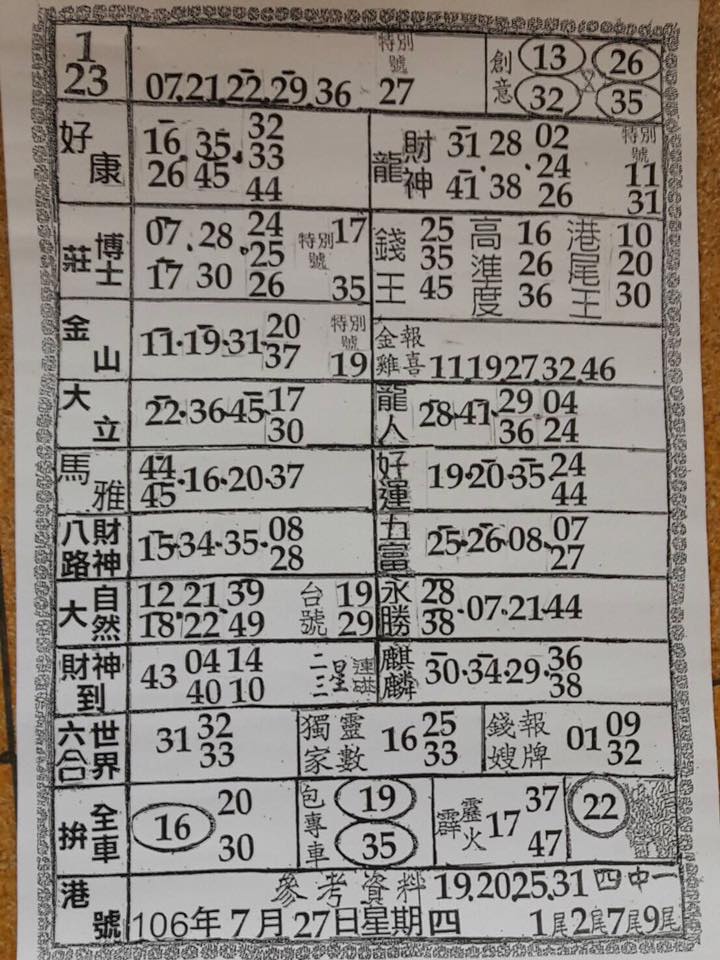 1
23
07.21.22.29.36
特別號
27
創意
13 26
32 35
好康
16 . 35 . 32
33
26 45 44
龍
財神
31 28 02
24
41 . 38 . 26
特別號
11
31
莊
博士
07 . 28 . 24
25
17 30 26
特別號
17
35
錢王
25
35
45
高準度
16
26
36
港尾王
10
20
30
金山
11.19.31. 20
37
特別號
19
金雞報喜
11.19.27.32.46
大立
22.36.45. 17
30
龍人
28.41. 29 04
36 24
馬雅
44
45 .16.20.37
好運
19.20.35. 24
44
八路財神
15.34.35. 08
28
五富
25.26.08. 07
27
大自然
12 21 39
18.22.49
台號
19
29
永勝
28
38 .07.21.44
財神到
43 04 14
40 10
二三星連碰
麒麟
30.34.29. 36
38
六合世界
31 32
33
獨家靈數
16 25
33
錢嫂報牌
01 09
32
拚全車
16 20
30
包專車
19
35
霹靂火
17 37
47
22
港號
參考資料 19.20.25.31 四中一
106年7月27日星期四 1尾2尾7尾9尾